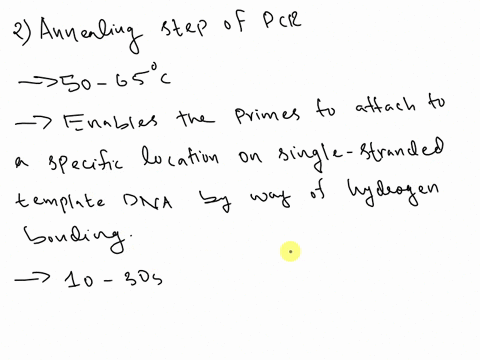 2) Annealing step of PCR
→ 50-65°C
→ Enables the Primes to attach to
a specific location on single-stranded
template DNA by way of hydrogen
bonding.
→ 10 - 30s